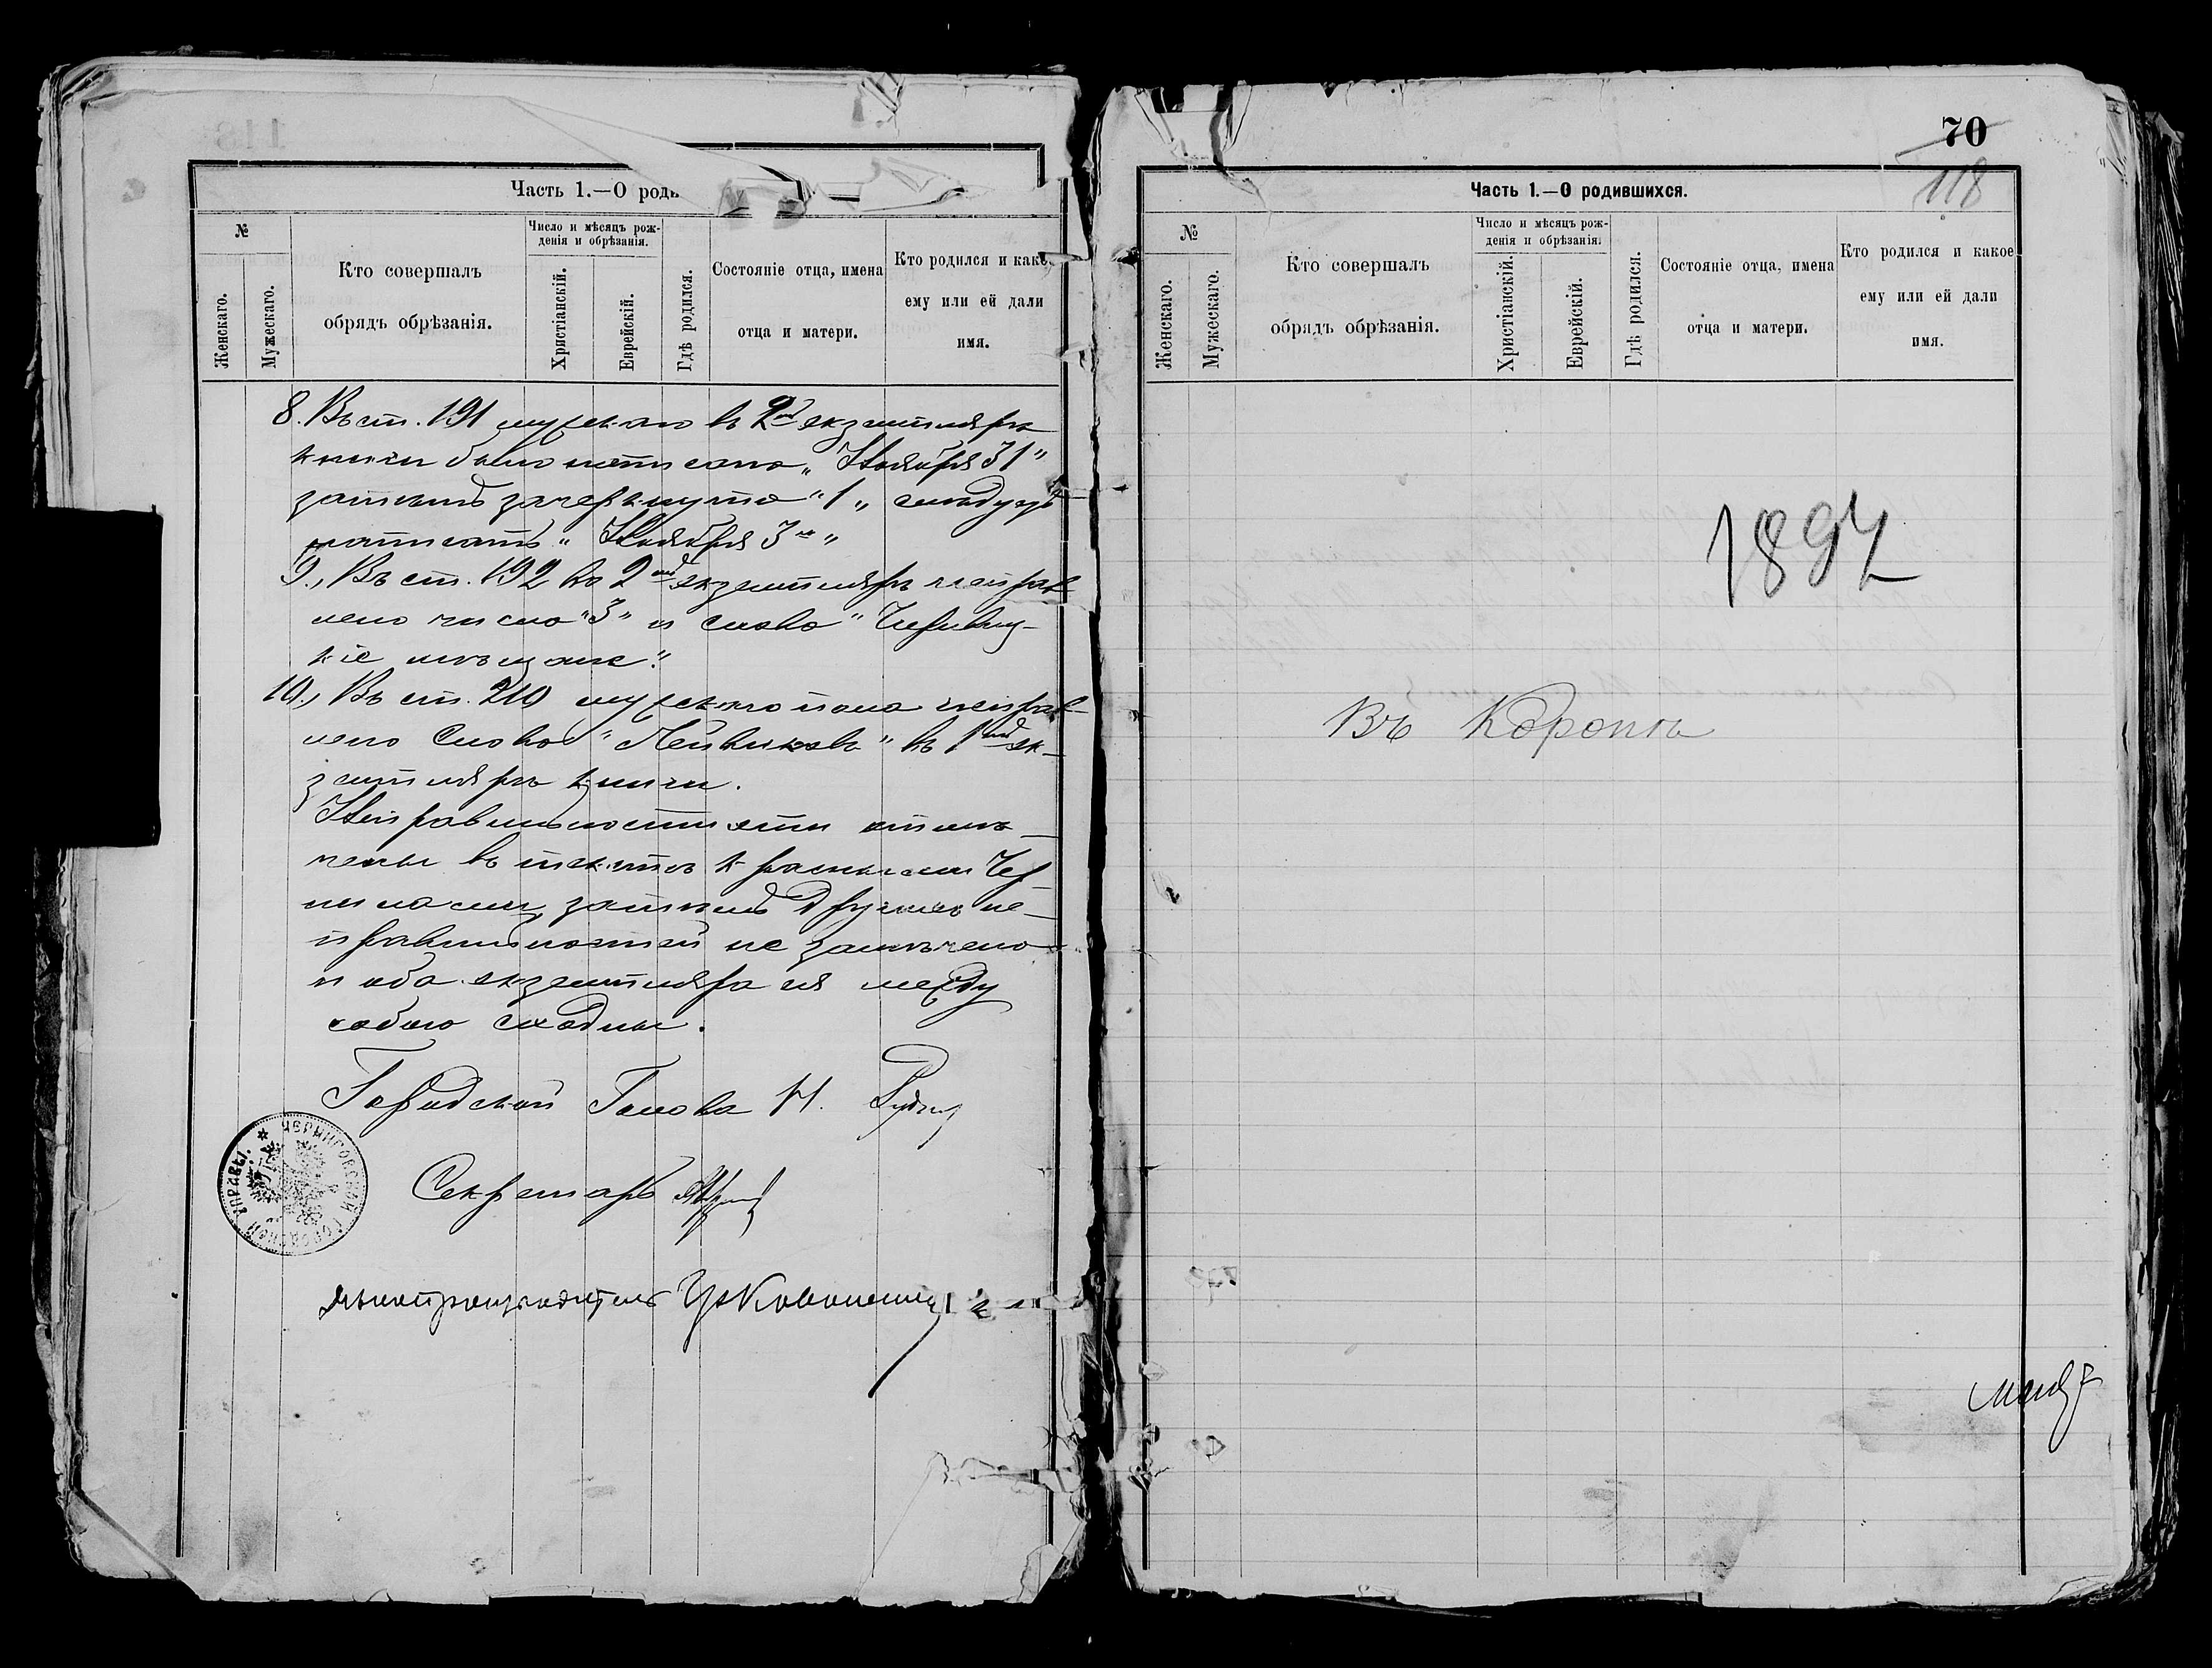 Часть 1.—О роди
№
Женскаго.
Мужескаго.
Кто совершалъ
обрядъ обрѣзанія.
Число и мѣсяцъ рож-
денія и обрѣзанія.
Христіанскій.
Еврейскій.
Гдѣ родился.
Состояніе отца, имена
отца и матери.
Кто родился и како
ему или ей дали
имя.
8. Въ ст. 191 мужскаго въ 2мъ экземплярѣ
книги было написано „Ноября 31"
затѣмъ зачеркнуто "1„ слѣдуетъ
написать „Ноября 3„
9., Въ ст. 192 во 2мъ экземплярѣ исправ-
лено число "3" и слово "Чернигов-
кіе мѣщане".
10., Въ ст. 210 мужскаго пола исправ-
лено слово въ 1мъ эк-
земплярѣ книги.
Неправильности эти отмѣ-
чены въ текстѣ красными чер-
нилами, затѣмъ другихъ не-
правильностей не замѣчено
и оба экземпляра ея между
собою сходны.
Городской Голова Н.
Секретарь
ЧЕРНИГОВСКОЙ ГОРОДСКОЙ УПРАВЫ.
Дѣлопроизводитель
70
118
Часть 1.—О родившихся.
№
Женскаго.
Мужескаго.
Кто совершалъ
обрядъ обрѣзанія.
Число и мѣсяцъ рож-
денія и обрѣзанія.
Христіанскій.
Еврейскій.
Гдѣ родился.
Состояніе отца, имена
отца и матери.
Кто родился и какое
ему или ей дали
имя.
1897
Въ Коропѣ